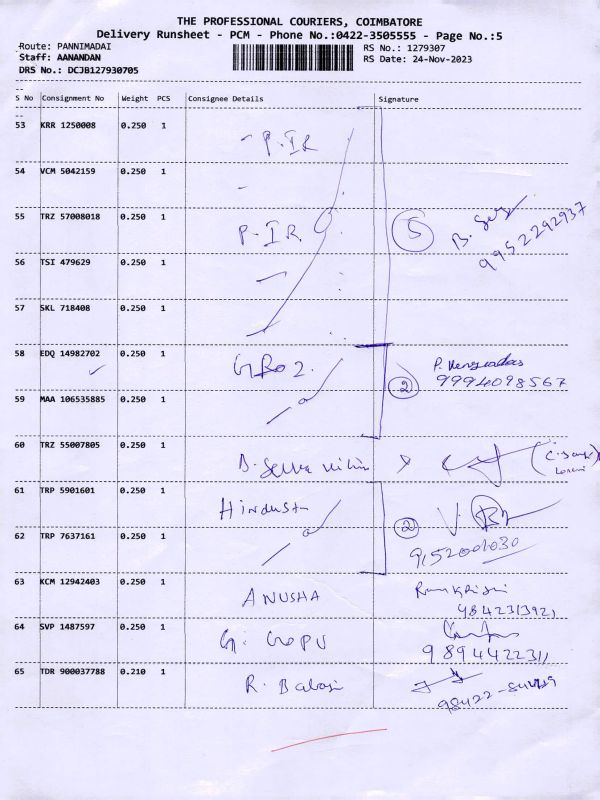 THE PROFESSIONAL COURIERS, COIMBATORE
Delivery Runsheet - PCM - Phone No.:0422-3505555 - Page No.:5
Route: PANNIMADAI
RS No.: 1279307
Staff: AANANDAN
RS Date: 24-Nov-2023
DRS No.: DCJB127930705
S No Consignment No Weight PCS Consignee Details Signature
53 KRR 1250008 0.250 1 - P.IR
54 VCM 5042159 0.250 1 -
55 TRZ 57008018 0.250 1 P-IR 5 B. 9952292937
56 TSI 479629 0.250 1
57 SKL 718408 0.250 1
58 EDQ 14982702 0.250 1 2 P. 9994098567
59 MAA 106535885 0.250 1
60 TRZ 55007805 0.250 1
61 TRP 5901601 0.250 1 2 V.
62 TRP 7637161 0.250 1
63 KCM 12942403 0.250 1 ANUSHA 9842313921
64 SVP 1487597 0.250 1 G. Gopu 9894422311
65 TDR 900037788 0.210 1 R. Balaji